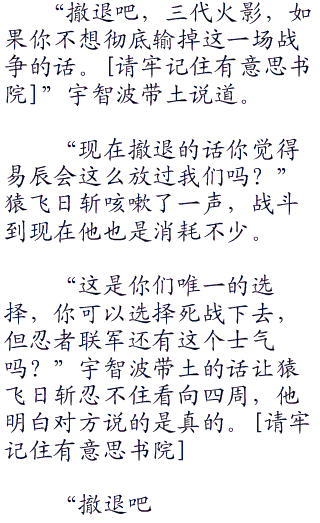 “撤退吧，三代火影，如
果你不想彻底输掉这一场战
争的话。[请牢记住有意思书
院]”宇智波带土说道。
“现在撤退的话你觉得
易辰会这么放过我们吗？”
猿飞日斩咳嗽了一声，战斗
到现在他也是消耗不少。
“这是你们唯一的选
择，你可以选择死战下去，
但忍者联军还有这个士气
吗？”宇智波带土的话让猿
飞日斩忍不住看向四周，他
明白对方说的是真的。[请牢
记住有意思书院]
“撤退吧